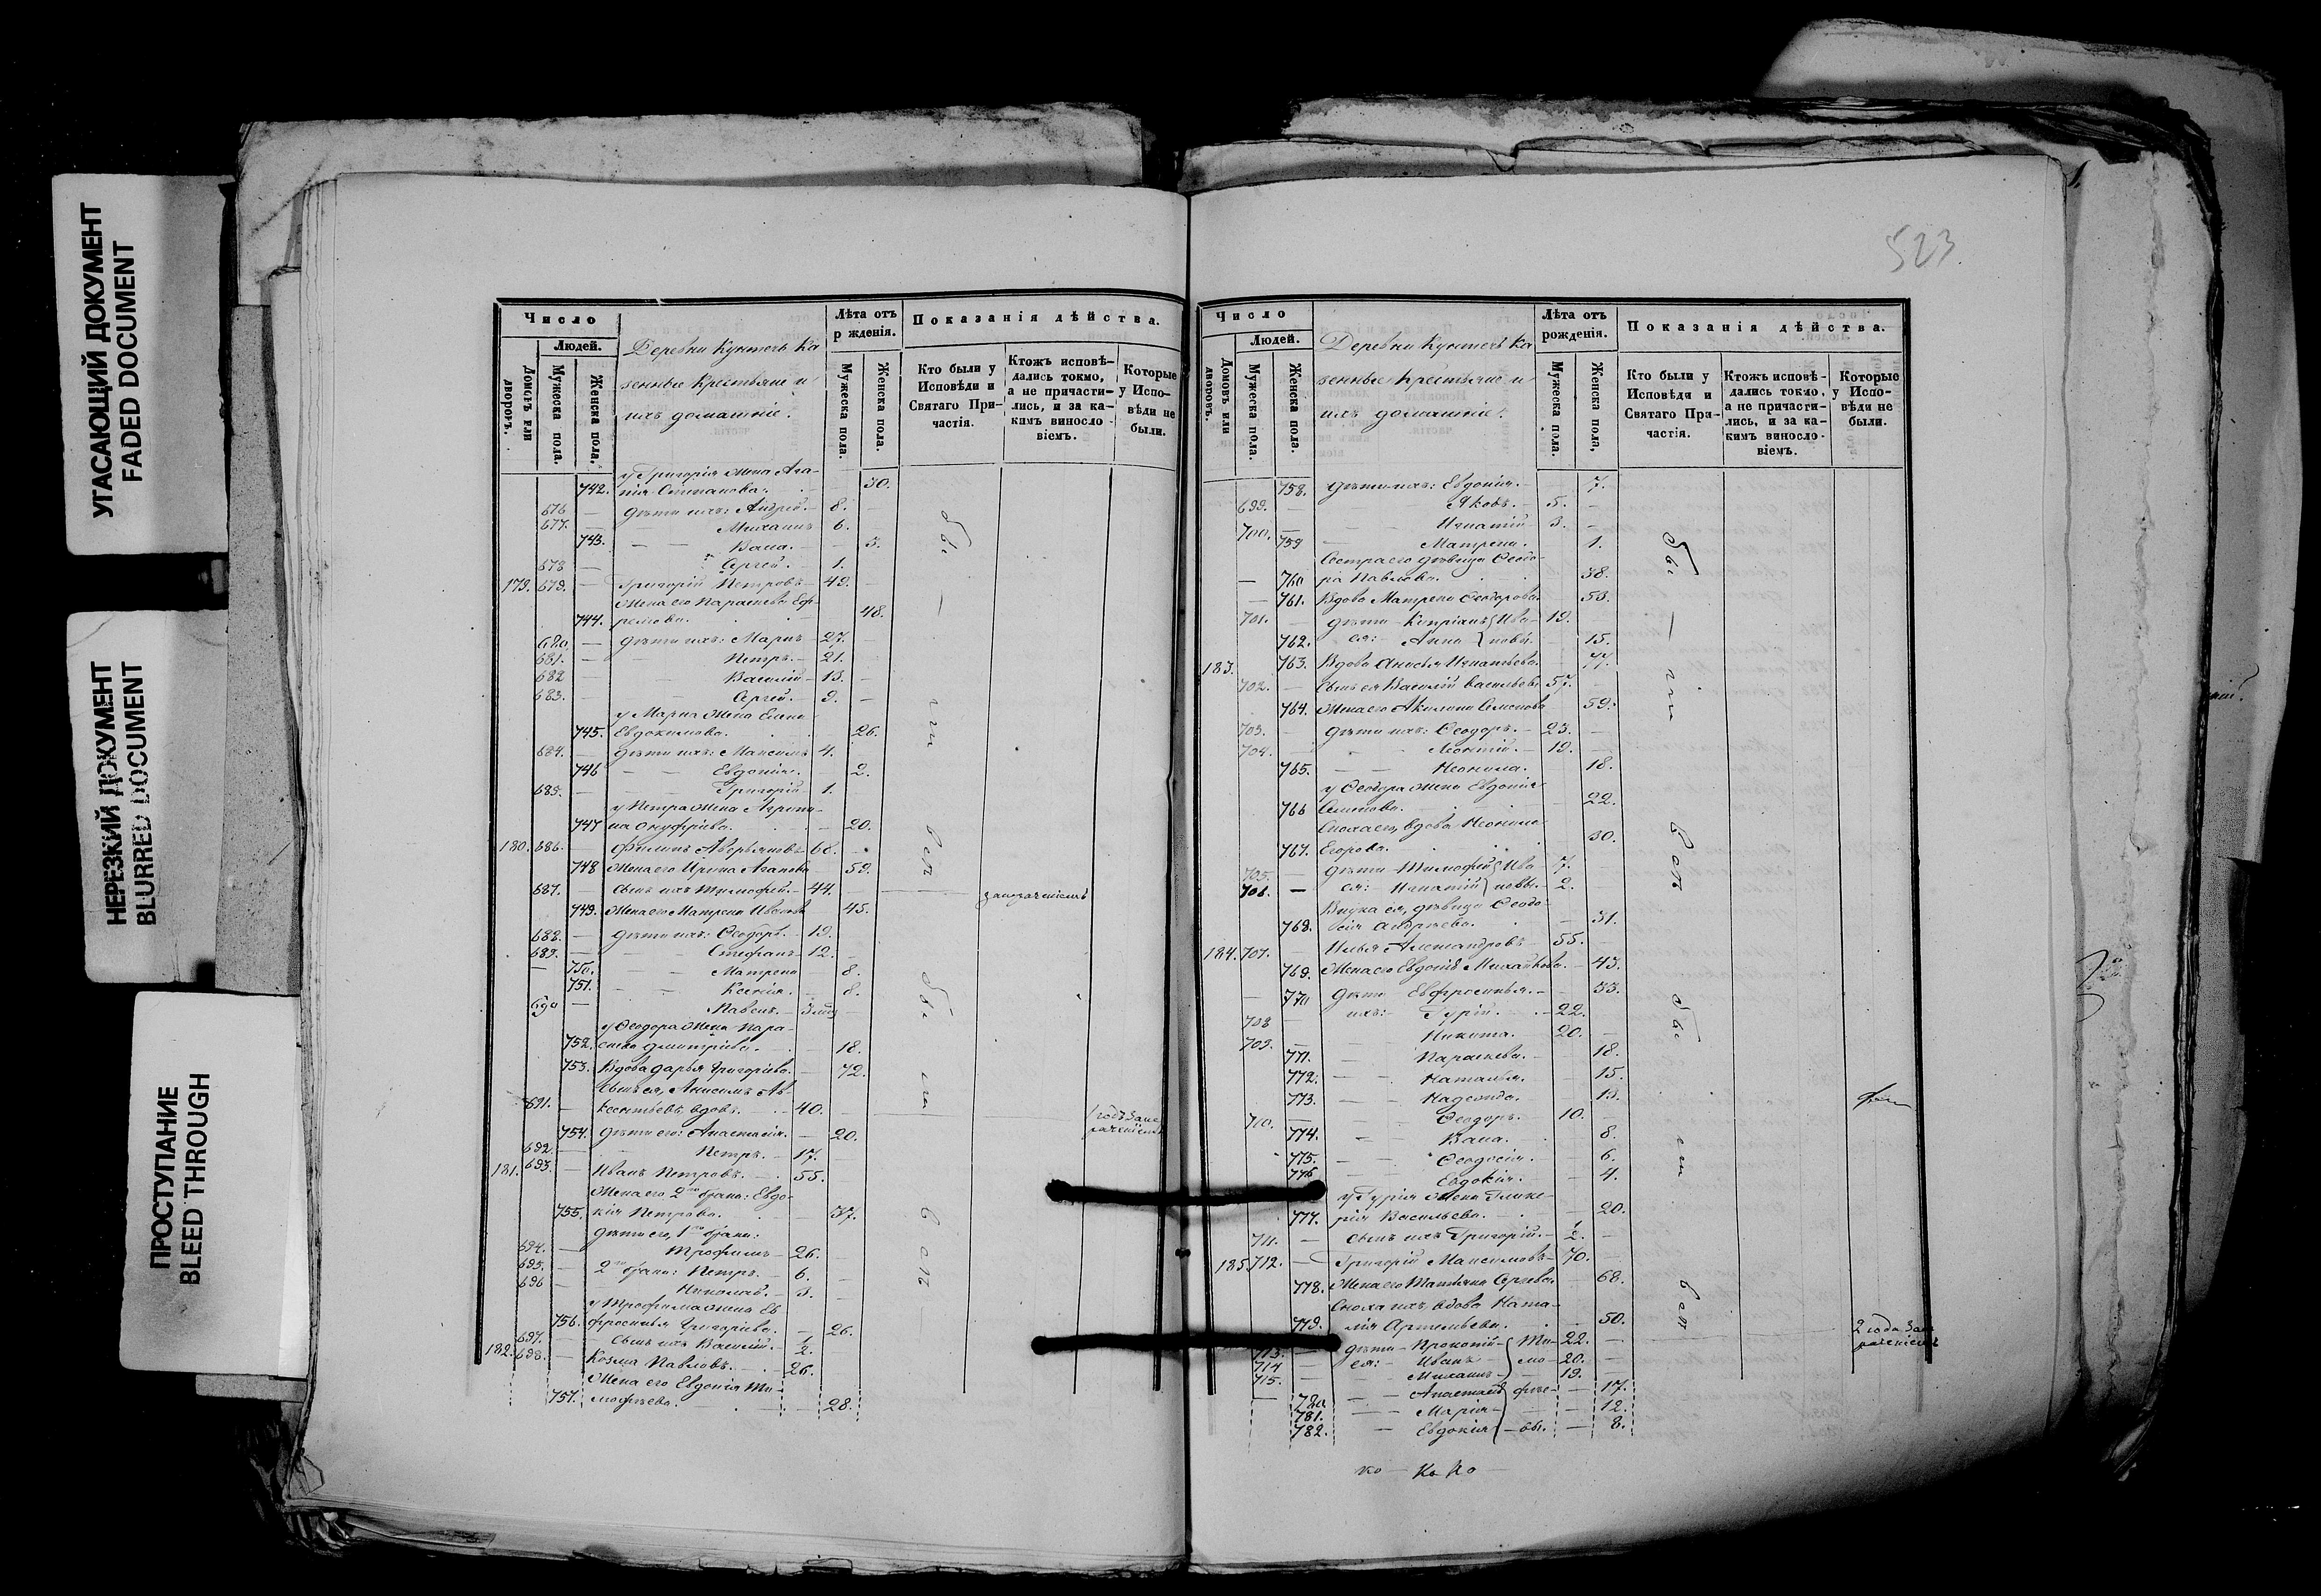 УГАСАЮЩИЙ ДОКУМЕНТ
FADED DOCUMENT
НЕРЕЗКИЙ ДОКУМЕНТ
BLURRED DOCUMENT
ПРОСТУПАНИЕ
BLEED THROUGH
Число
Людей.
Домовъ или дворовъ.
Мужеска пола.
Женска пола.
Деревни Ка
зенные крестьяне и
ихъ домашніе.
Лѣта отъ
р жденія.
Мужеска пола.
Женска пола.
Показанія дѣйства.
Кто были у
Исповѣди и
Святаго При-
частія.
Ктожъ исповѣ-
дались токмо,
а не причасти-
лись, и за ка-
кимъ винosло-
віемъ.
Которые
у Испо-
вѣди не
были.
у Григорія жена Ага-
742. пія Степанова. 30.
676 — дѣти ихъ: Андрей. — 8. —
677. — Михаилъ 6. —
743. — — Васса. — 3.
678 — Сергей. — 1.
179. 679. — Григорій Петровъ — 49. —
Жена его Параскева Еф-
744. ремова. — 48.
680. — дѣти ихъ: Маркъ — 27. —
681. — Петръ. — 21.
682 — Василій — 13. —
683. — Сергей. — 9. —
у Марка жена Елена
745. Евдокимова. 26.
684. — дѣти ихъ: Максимъ 4.
746 — — Евдокія. — 2.
685. — Григорій 1.
у Петра жена Агрипи-
747 на Онуфріева. — 20.
180. 686. — Филипъ Аверьяновъ 60.
748 Жена его Ирина Агапова 59.
687. — сынъ ихъ Тимофей. — 44. за отреченіемъ
749. Жена его Матрена Иванова 45.
688. — дѣти ихъ: Ѳеодоръ. — 19.
689. — Стефанъ 12. —
— 750. — — Матрена 8.
751. — Ксенія. — 8.
690 — Павелъ. —
у Ѳеодора жена Пара-
752. скева Дмитріева. — 18.
753. Вдова Дарья Григоріева. — 72.
сынъ ея, Анисимъ Ав-
691. — ксентьевъ, вдовъ. — 40. —
754. дѣти его: Анастасія. — 20.
692. — Петръ. — 17.
181. 693. — Иванъ Петровъ. — 55. —
Жена его 2го брака: Евдо-
755. кія Петрова. — 37.
дѣти его, 1го брака:
694. — Трофимъ — 26. —
695. — 2го брака: Петръ. — 6. —
696 — Николай. — 3. —
у Трофима жена Ев-
756. фросинья Григоріева. — 26.
697. — сынъ ихъ Василій. — 1/2. —
182. 698. — Козма Павловъ. — 26.
Жена его Евдокія Ти-
757. мофеева. — 28.
523
Число
Людей.
Домовъ или дворовъ.
Мужеска пола.
Женска пола.
Деревни Ка
зенные крестьяне и
ихъ домашніе.
Лѣта отъ
рожденія.
Мужеска пола.
Женска пола,
Показанія дѣйства.
Кто были у
Исповѣди и
Святаго При-
частія.
Ктожъ исповѣ-
дались токмо,
а не причасти-
лись, и за ка-
кимъ виносло-
віемъ.
Которые
у Испо-
вѣди не
были.
758. дѣти ихъ: Евдокія. — 7.
699. — Яковъ. — 5. —
700. — Игнатій — 3. —
759 — Матрена. 1.
Сестра его дѣвица Ѳеодо-
— 760 ра Павлова. 38.
— 761. Вдова Матрена Ѳеодорова. 53.
701. — дѣти Кипріянъ } Ива- 19. —
762. ея: — Анна } новы 15.
183. 763. Вдова Анисья Игнатьева. 77.
702. — Сынъ ея Василій Васильевъ 57.
764. Жена его Акилина Семенова 59.
703. — дѣти ихъ: Ѳеодоръ. — 23. —
704. — Леонтій. — 19. —
765. — — Неонила. 18.
у Ѳеодора жена Евдокія
766 Семенова. 22.
Сноха ея, вдова Неонила
767. Егорова. 30.
705. — дѣти Тимофей } Ива- 7. —
706. — ея: — Игнатій } новы. — 2. —
Внука ея, дѣвица Ѳеодо-
768. сія Андреева. — 31.
184. 707. — Илья Александровъ 55. —
769. Жена его Евдокія Михайлова. — 43.
— 770 дѣти Евфросинья. — 33.
708 — ихъ: — Гурій. — 22.
709. — Никита. 20. —
771. — Параскева. — 18.
772. — — Наталья. — 15.
773. — — Надежда. 13.
710. — Ѳеодоръ. 10. —
774. — Васса. 8.
775. — — Ѳеодосія. — 6.
776 Евдокія. — 4.
у Гурія жена Глике-
777. рія Васильева. — 20.
711. — сынъ ихъ Григорій. — 1/2. —
185. 712. — Григорій Максимовъ — 70. —
778. Жена его Татьяна Сергеева 68.
Сноха ихъ, вдова Ната-
779. лія Артемьева. 50.
713. — дѣти — Прокопій — } Ти- 22. —
714 — ея: — Иванъ } мо- 20. —
715. — Михаилъ — } — 19. —
— 780 — — Анастасія } фѣе- — 17.
781. — — Марія — — 12.
782. — Евдокія — вы. — 8.